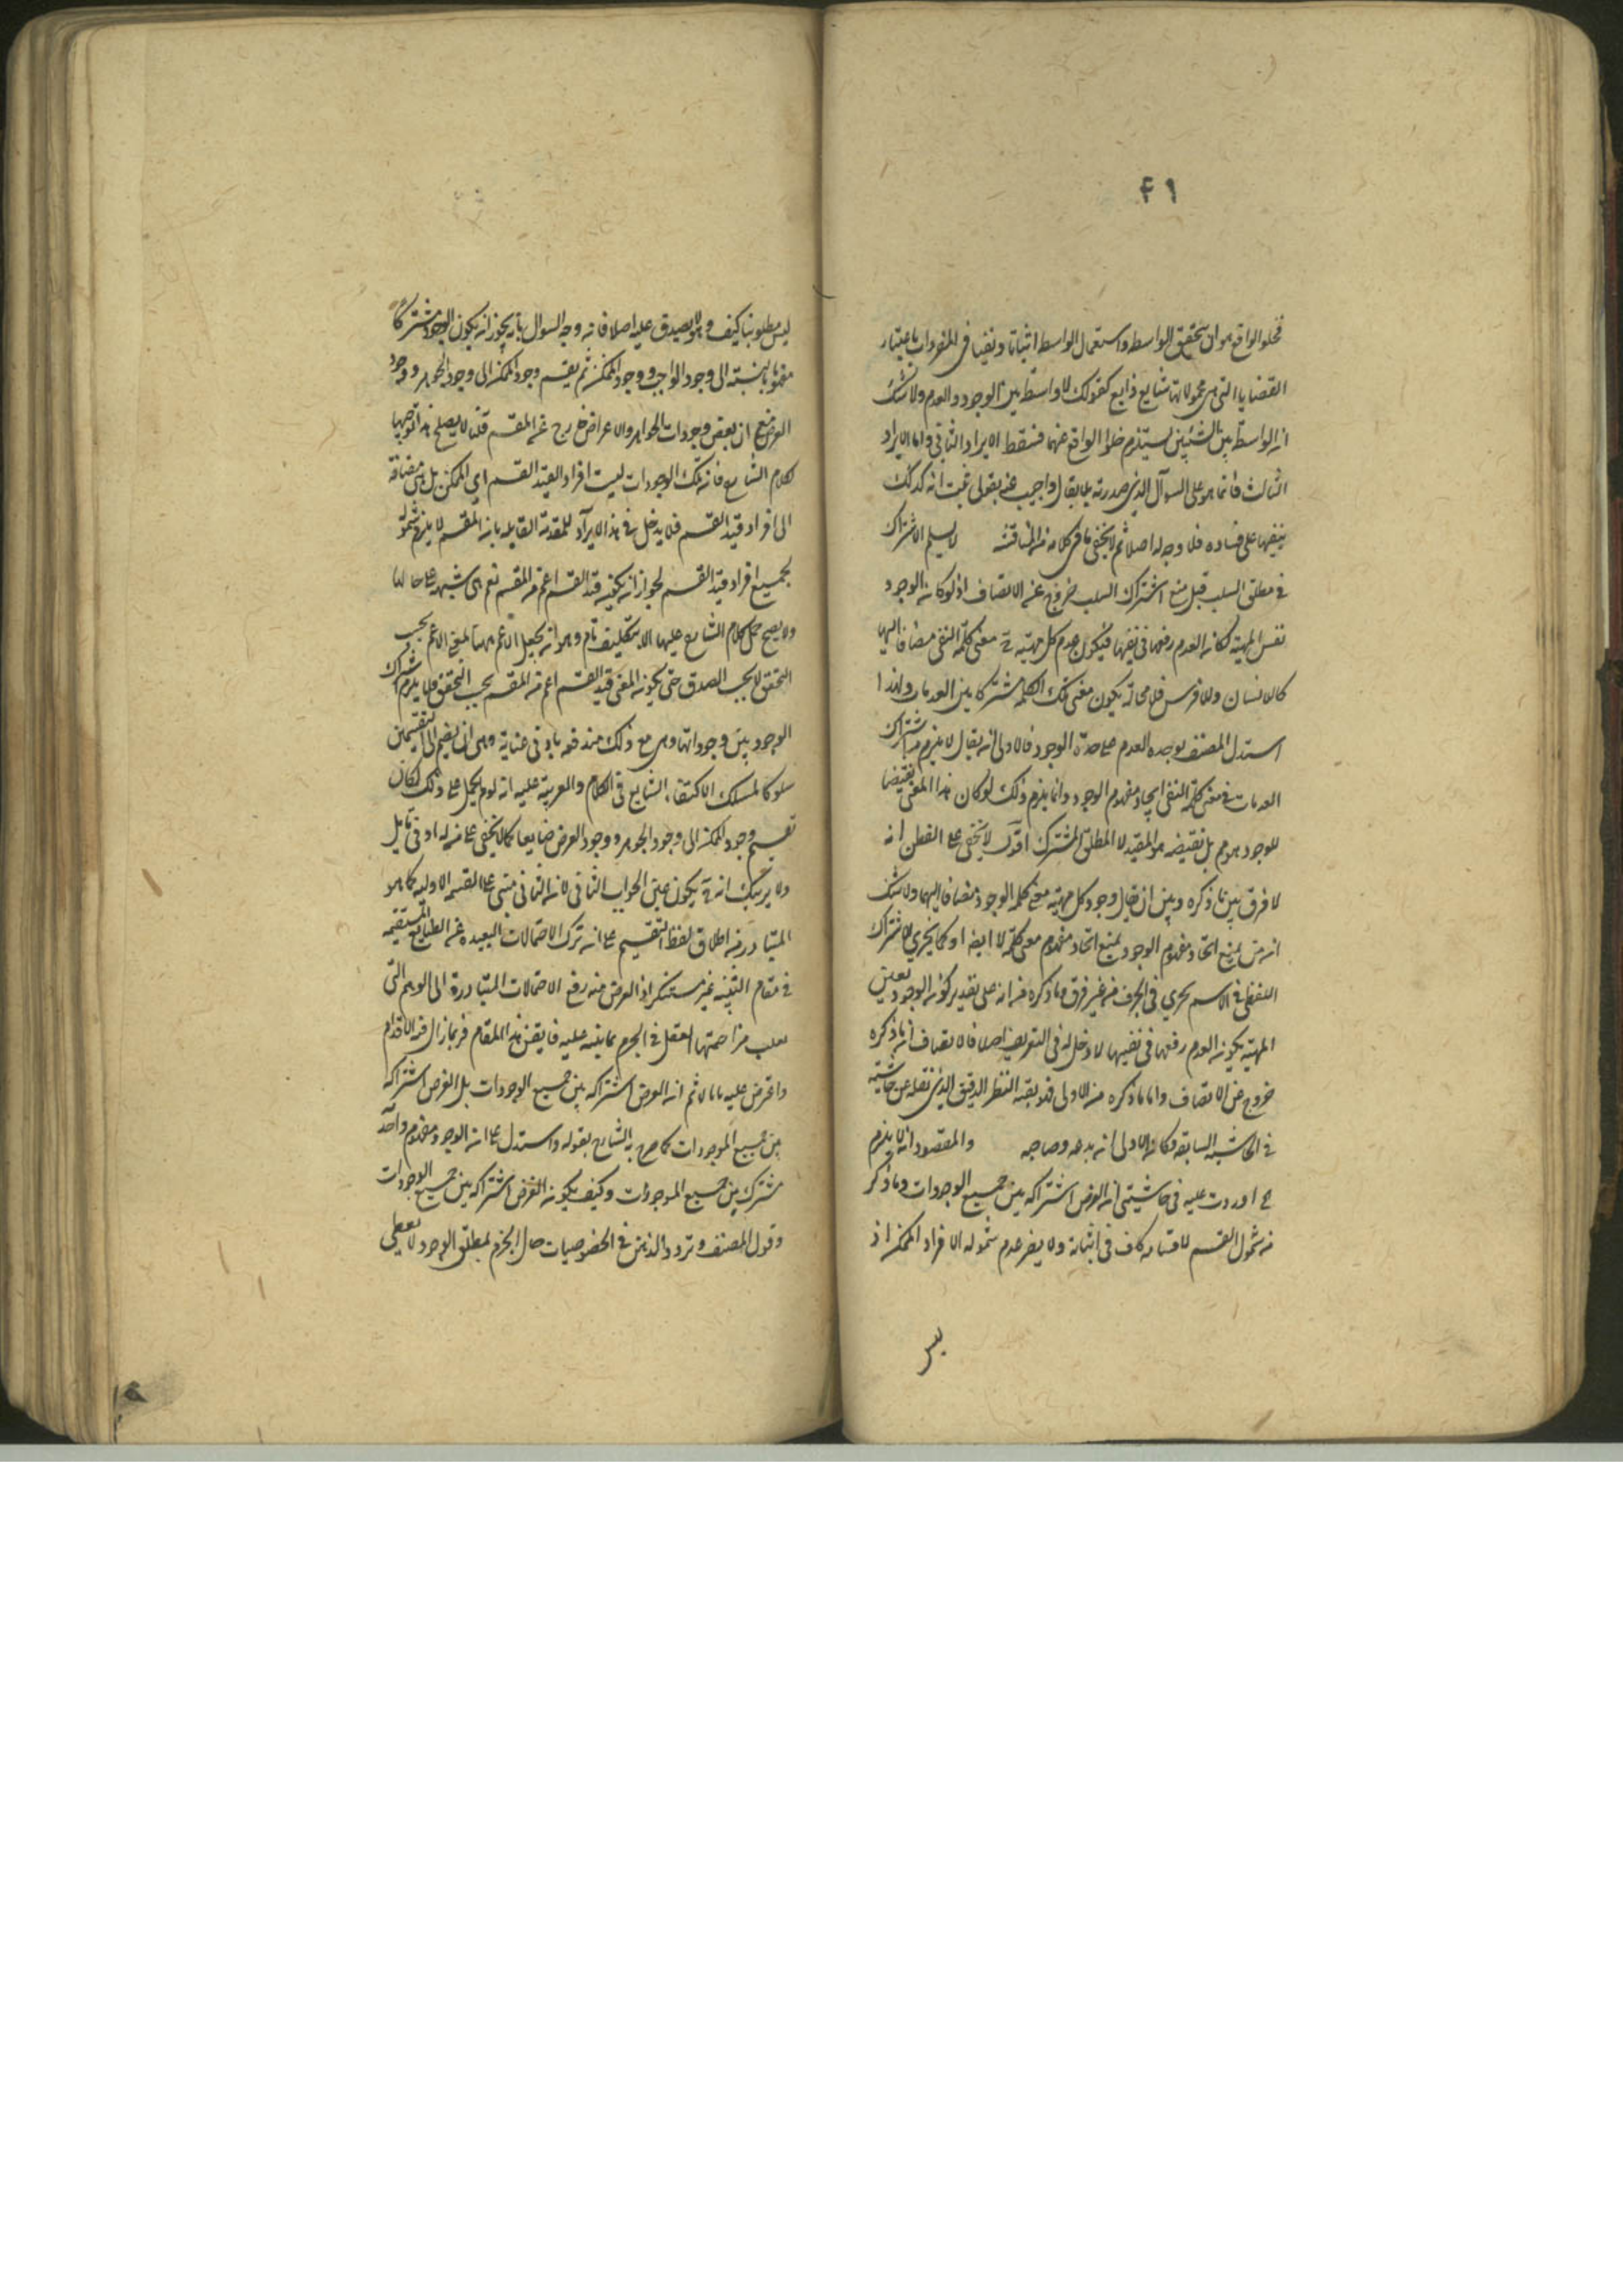 ٤١
فخلو الواقع هو ان يتحقق الواسطه واستعمال الواسطه اثباتا ونفيا في المفردات باعتبار
القضايا التي هي محمولاتها شايع ذايع كقولك لا واسطة بين الوجود والعدم ولا شك
ان الواسطة بين الشيئين يستلزم خلو الواقع عنهما فسقط الايراد الثاني واما الايراد
الثالث فانما هو على السوآل الذي صدرته بما يقال واجيب عنه بقولى ثبت انه كذلك
ينفيها على فساده فلا وجه له اصلا ثم لا يخفى ما في كلامه من المناقشه لا يسلم الاشتراك
في مطلق السلب قيل منع اشتراك السلب خروج عن الانصاف اذ لو كان الوجود
نفس المهية لكان العدم رفعها في نفسها فيكون عدم كل مهية ح معنى كلمة النفى مضافا اليها
كالانسان ولا فرس فلا محالة يكون معنى تلك الكلمه مشتركا بين العدمات ولهذا
استدل المصنف بوحدة العدم على وحدة الوجود فالاولى ان يقال لا يلزم من اشتراك
العدمات في معنى كلمة النفى اتحاد مفهوم الوجود وانما يلزم ذلك لو كان هذا المعنى نقيضا
للوجود وهو مم بل نقيضه هو المقيد لا المطلق المشترك اقول لا يخفى على الفطن انه
لا فرق بين ما ذكره وبين ان يقال وجود كل مهية معنى كلمة الوجود مضافا اليها ولا شك
انه من يمنع اتحاد مفهوم الوجود يمنع اتحاد مفهوم معنى كلمة لا ايضا وكما يجري الاشتراك
اللفظي في الاسم يجري في الحرف من غير فرق وما ذكره من انه على تقدير كون الوجود نفس
المهية يكون العدم رفعها في نفسها لا دخل له في التعريف اصلا فالانصاف ان ما ذكره
خروج عن الانصاف واما ما ذكره من الاولى فلا النظر الدقيق الذي نقله عن حاشيته
في الحاشيه السابقه فكان الاولى ان والمقصود انه لا يلزم
ح اوردت عليه في حاشيتى ان الغرض اشتراكه بين جميع الوجودات وما ذكر
من شمول القسم لاقسامه كاف في اثباته ولا يضر عدم شموله الافراد الممكن اذ
ليس
ليس مطلوبنا كيف وهو لا يصدق عليه اصلا فانه وجه السوال بانه يجوز ان يكون الوجود مشتركا
مفهوما بالنسبة الى وجود الواجب ووجود الممكن ثم يقسم وجود الممكن الى وجود الجوهر ووجود
العرض مع ان بعض وجودات الجواهر والاعراض خارج عن المقسم قلنا لا يصلح هذا توجيها
لكلام الشارح فان تلك الوجودات ليست افراد القيد القسم اى الممكن بل هى مضافة
الى افراد قيد القسم فلا يدخل في هذا الايراد للمقدمة القايله بان المقسم لا يلزم شموله
لجميع افراد قيد القسم لجواز ان يكون قيد القسم اعم من المقسم نعم هى شبهة على حالها
ولا يصح حمل كلام الشارح عليها الا بتكليف تام وهو ان يجعل الاعم ههنا بمعنى الاعم بحسب
التحقق لا بحسب الصدق حتى يكون المعنى قيد القسم اعم من المقسم بحسب التحقق فلا يلزم اشتراك
الوجود بين وجوداتها وهى مع ذلك مندفعه بادنى عناية وهى ان يضم الى التقسيمين
سلوكا لمسلك الاكتفاء الشايع في الكلام والقرينة عليه انه لو لم يحمل على ذلك لكان
تقسيم وجود الممكن الى وجود الجوهر ووجود العرض ضايعا كما لا يخفى على من له ادنى تامل
ولا يريبك انه ح يكون عين الجواب الثاني لان الثاني مبني على القسمه الاوليه كما هو
المتبادر من اطلاق لفظ التقسيم على انه ترك الاحتمالات البعيده عن الطبايع المستقيمه
في مقام التنبيه غير مستنكر اذ الغرض منه رفع الاحتمالات المتبادرة الى الوهم التى
مزاحمتها العقل في الجزم بما ينبه عليه فايقن هذا المقام فربما زال فيه الاقدام
واعترض عليه بانا لا ثم ان الغرض اشتراكه بين جميع الوجودات بل الغرض اشتراكه
بين جميع الموجودات كما صرح به الشارح بقوله واستدل على ان الوجود مفهوم واحد
مشترك بين جميع الموجودات وكيف يكون الغرض اشتراكه بين جميع الوجودات
وقول المصنف وتردد الذهن في الخصوصيات حال الجزم بمطلق الوجود لا يعطى